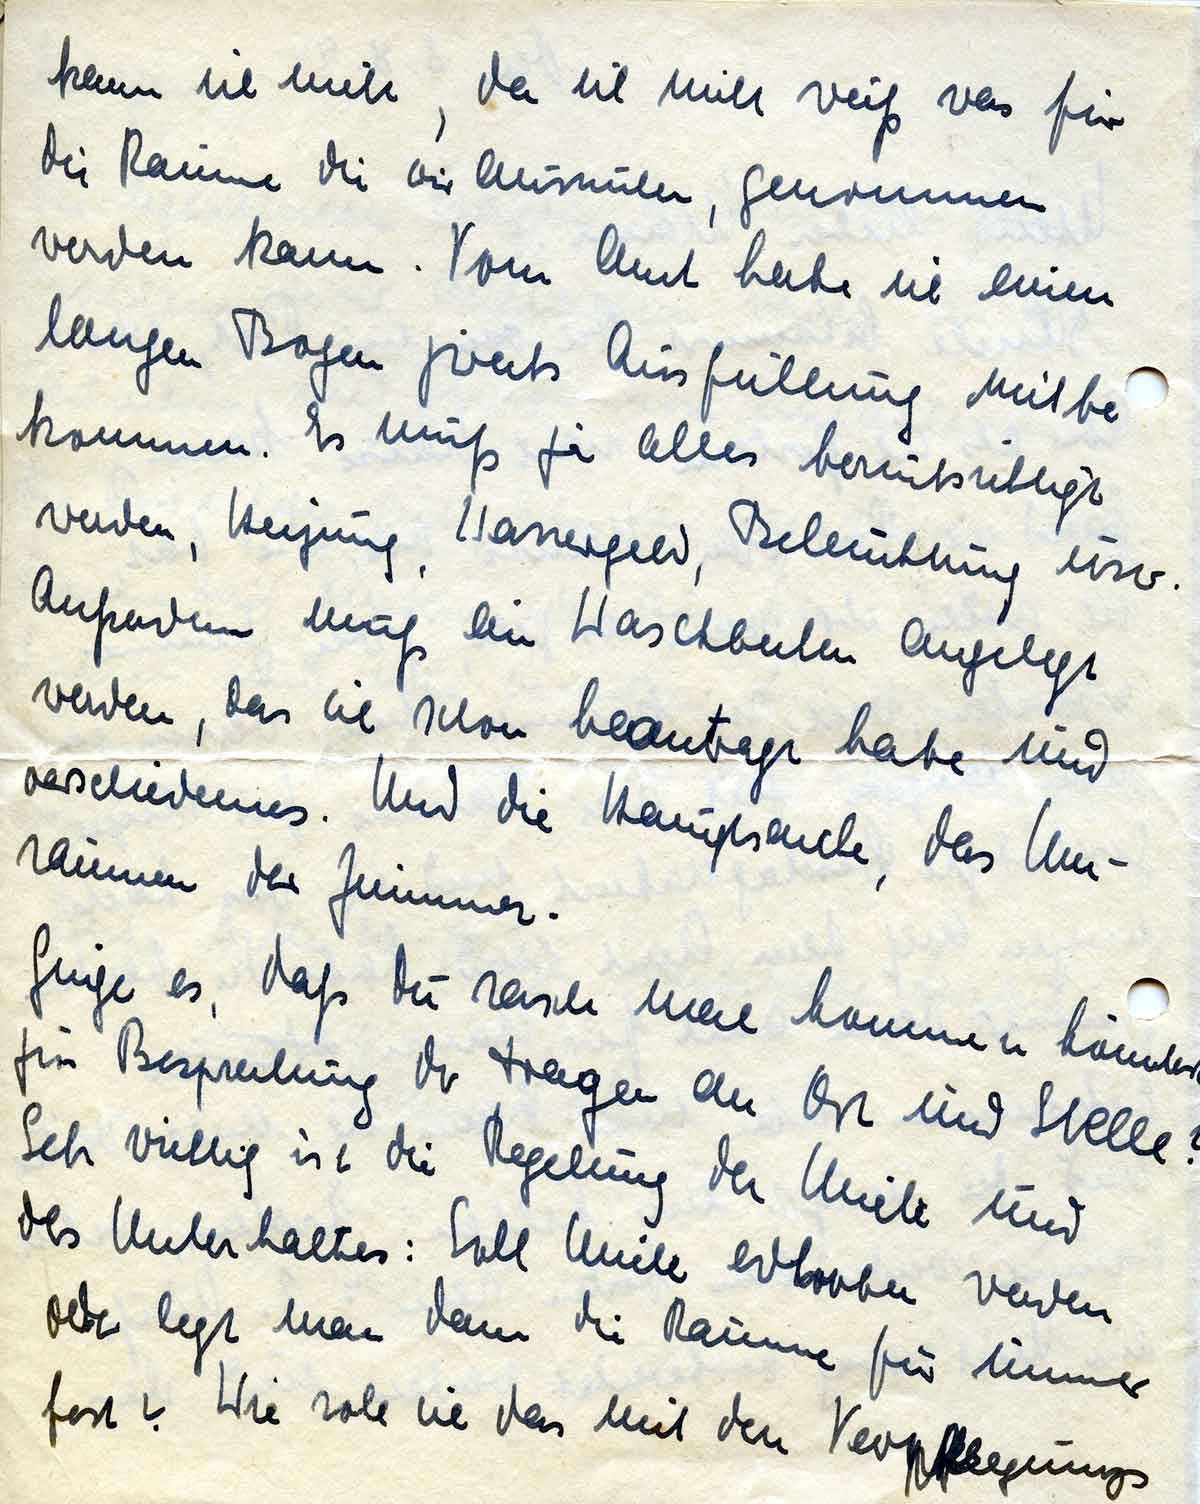 kann ich nicht, da ich nicht weiß was für
die Räume die wir ausräumen, genommen
werden kann. Vom Amt habe ich einen
langen Bogen zwecks Ausfüllung mitbe
kommen. Es muß ja alles berücksichtigt
werden, Heizung, Wassergeld, Beleuchtung usw.
Außerdem muß ein Waschbecken angelegt
werden, das ich schon beantragt habe und
verschiedenes. Und die Hauptsache, das Um-
räumen der Zimmer.
Ginge es, daß Du rasch mal kommen könntest
zur Besprechung der Fragen an Ort und Stelle?
Sehr wichtig ist die Regelung der Miete und
des Unterhaltes: Soll Miete erhoben werden
oder legt man dann die Räume für immer
fest? Wie soll ich das mit den Verpflegungs